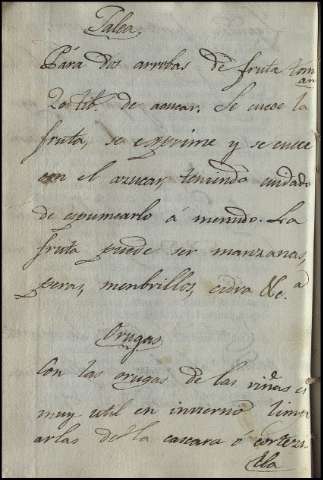 Jalea,
Para dos arrobas de fruta toman
20 lib. de azucar. Se cuese la
fruta, se exprime y se cuece
con el azucar, teniendo cuidado
de espumearlo á menudo. La
fruta puede ser manzanas,
peras, menbrillos, cidra &c.ª
Orugas,
Con las orugas de las viñas es
muy util en invierno limpi
arlas de la cascara ó corteza